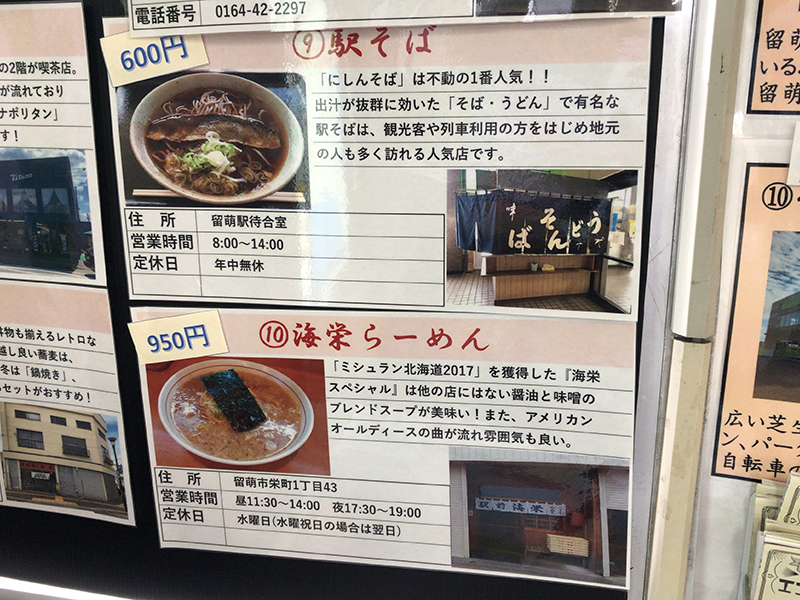 電話番号 0164-42-2297
の2階が喫茶店。
が流れており
ナポリタン」
す！
600円
⑨駅そば
「にしんそば」は不動の1番人気！！
出汁が抜群に効いた「そば・うどん」で有名な
駅そばは、観光客や列車利用の方をはじめ地元
の人も多く訪れる人気店です。
味
うどん
そば
住　所 留萌駅待合室
営業時間 8:00～14:00
定休日 年中無休
丼物も揃えるレトロな
越し良い蕎麦は、
冬は「鍋焼き」、
セットがおすすめ！
950円
⑩海栄らーめん
「ミシュラン北海道2017」を獲得した『海栄
スペシャル』は他の店にはない醤油と味噌の
ブレンドスープが美味い！また、アメリカン
オールディースの曲が流れ雰囲気も良い。
駅前 海栄
住　所 留萌市栄町1丁目43
営業時間 昼11:30～14:00　夜17:30～19:00
定休日 水曜日(水曜祝日の場合は翌日)
留萌
いる
留萌
⑩
広い芝生
ン、パー
自転車の
エコ